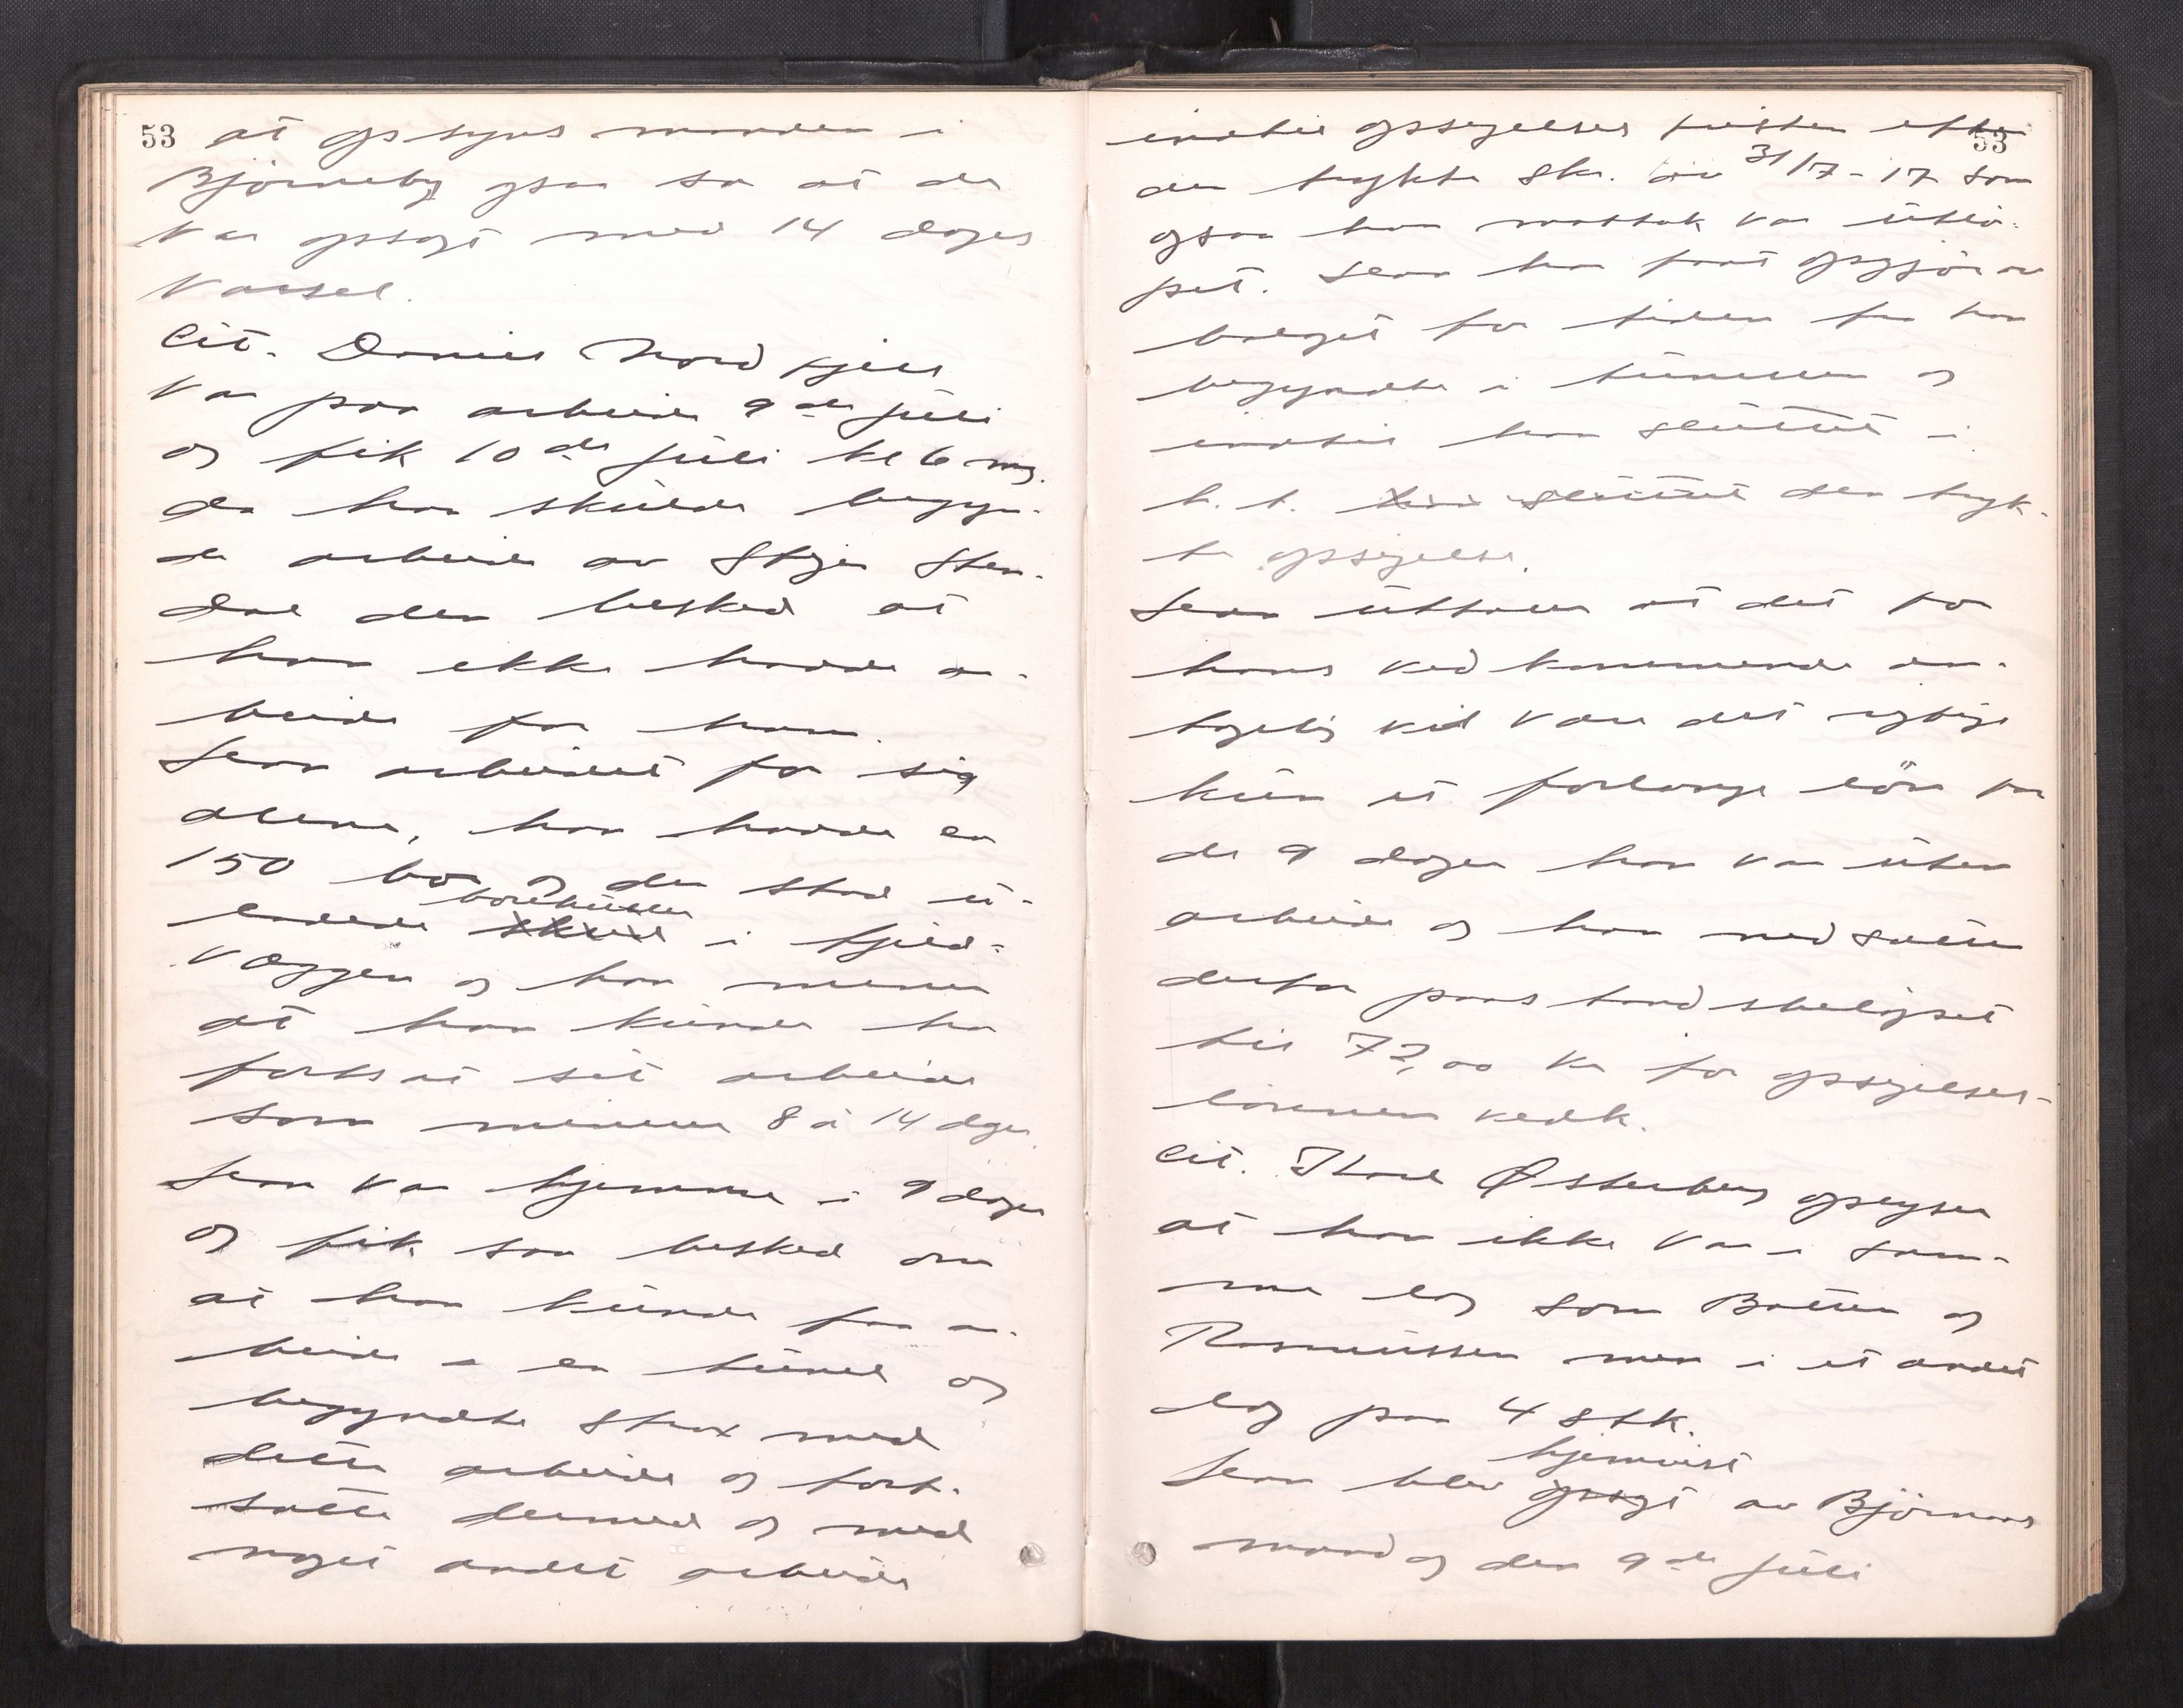 53 at opsynsmanden i
Björneby ogsaa sa at de
var opsagt med 14 dages
varsel.
Cit. Daniel Nordfjeld
var paa arbeide 9de juli
og fik 10de juli kl 6 mg.
da han skulde begyn-
de arbeide av Stiger Sten-
dal den besked at
han ikke hadde ar-
beide for ham.
Han arbeidet for sig
alene, han hadde en
150 bor og der stod u-
ladede skud borehuller i fjeld-
væggen og han mener
at han kunde ha
fortsat sit arbeide
som minimum 8 à 14 dger.
Han var hjemme i 9 dager
og fik saa besked om
at han kunde faa ar-
beide i en tunel og
begyndte strax med
dette arbeide og fort-
satte dermed og med
noget andet arbeide
indtil opsigelses fristen efter 53
den trykte skr. av 31/7-17 som
ogsaa han mottok var utlö-
pet. Han har faat opgjör av
bolaget for tiden fra han
begyndte i tunnelen og
indtil han sluttet i
h. t. den tryk-
te opsigelse.
Han uttaler at det for
hans vedkommende an-
tagelig vil være det rigtige
kun at forlange lön for
de 9 dager han var uten
arbeide og han nedsætter
derfor paastandsbelöpet
til 72,00 kr for opsigelses-
lönnen vedk.
Cit. Thord Østerberg oplyser
at han ikke var i sam-
me lag som Botten og
Rasmussen men i et andet
lag paa 4 stk.
hjemvist
Han blev opsagt av Björnaas
mandag den 9de juli